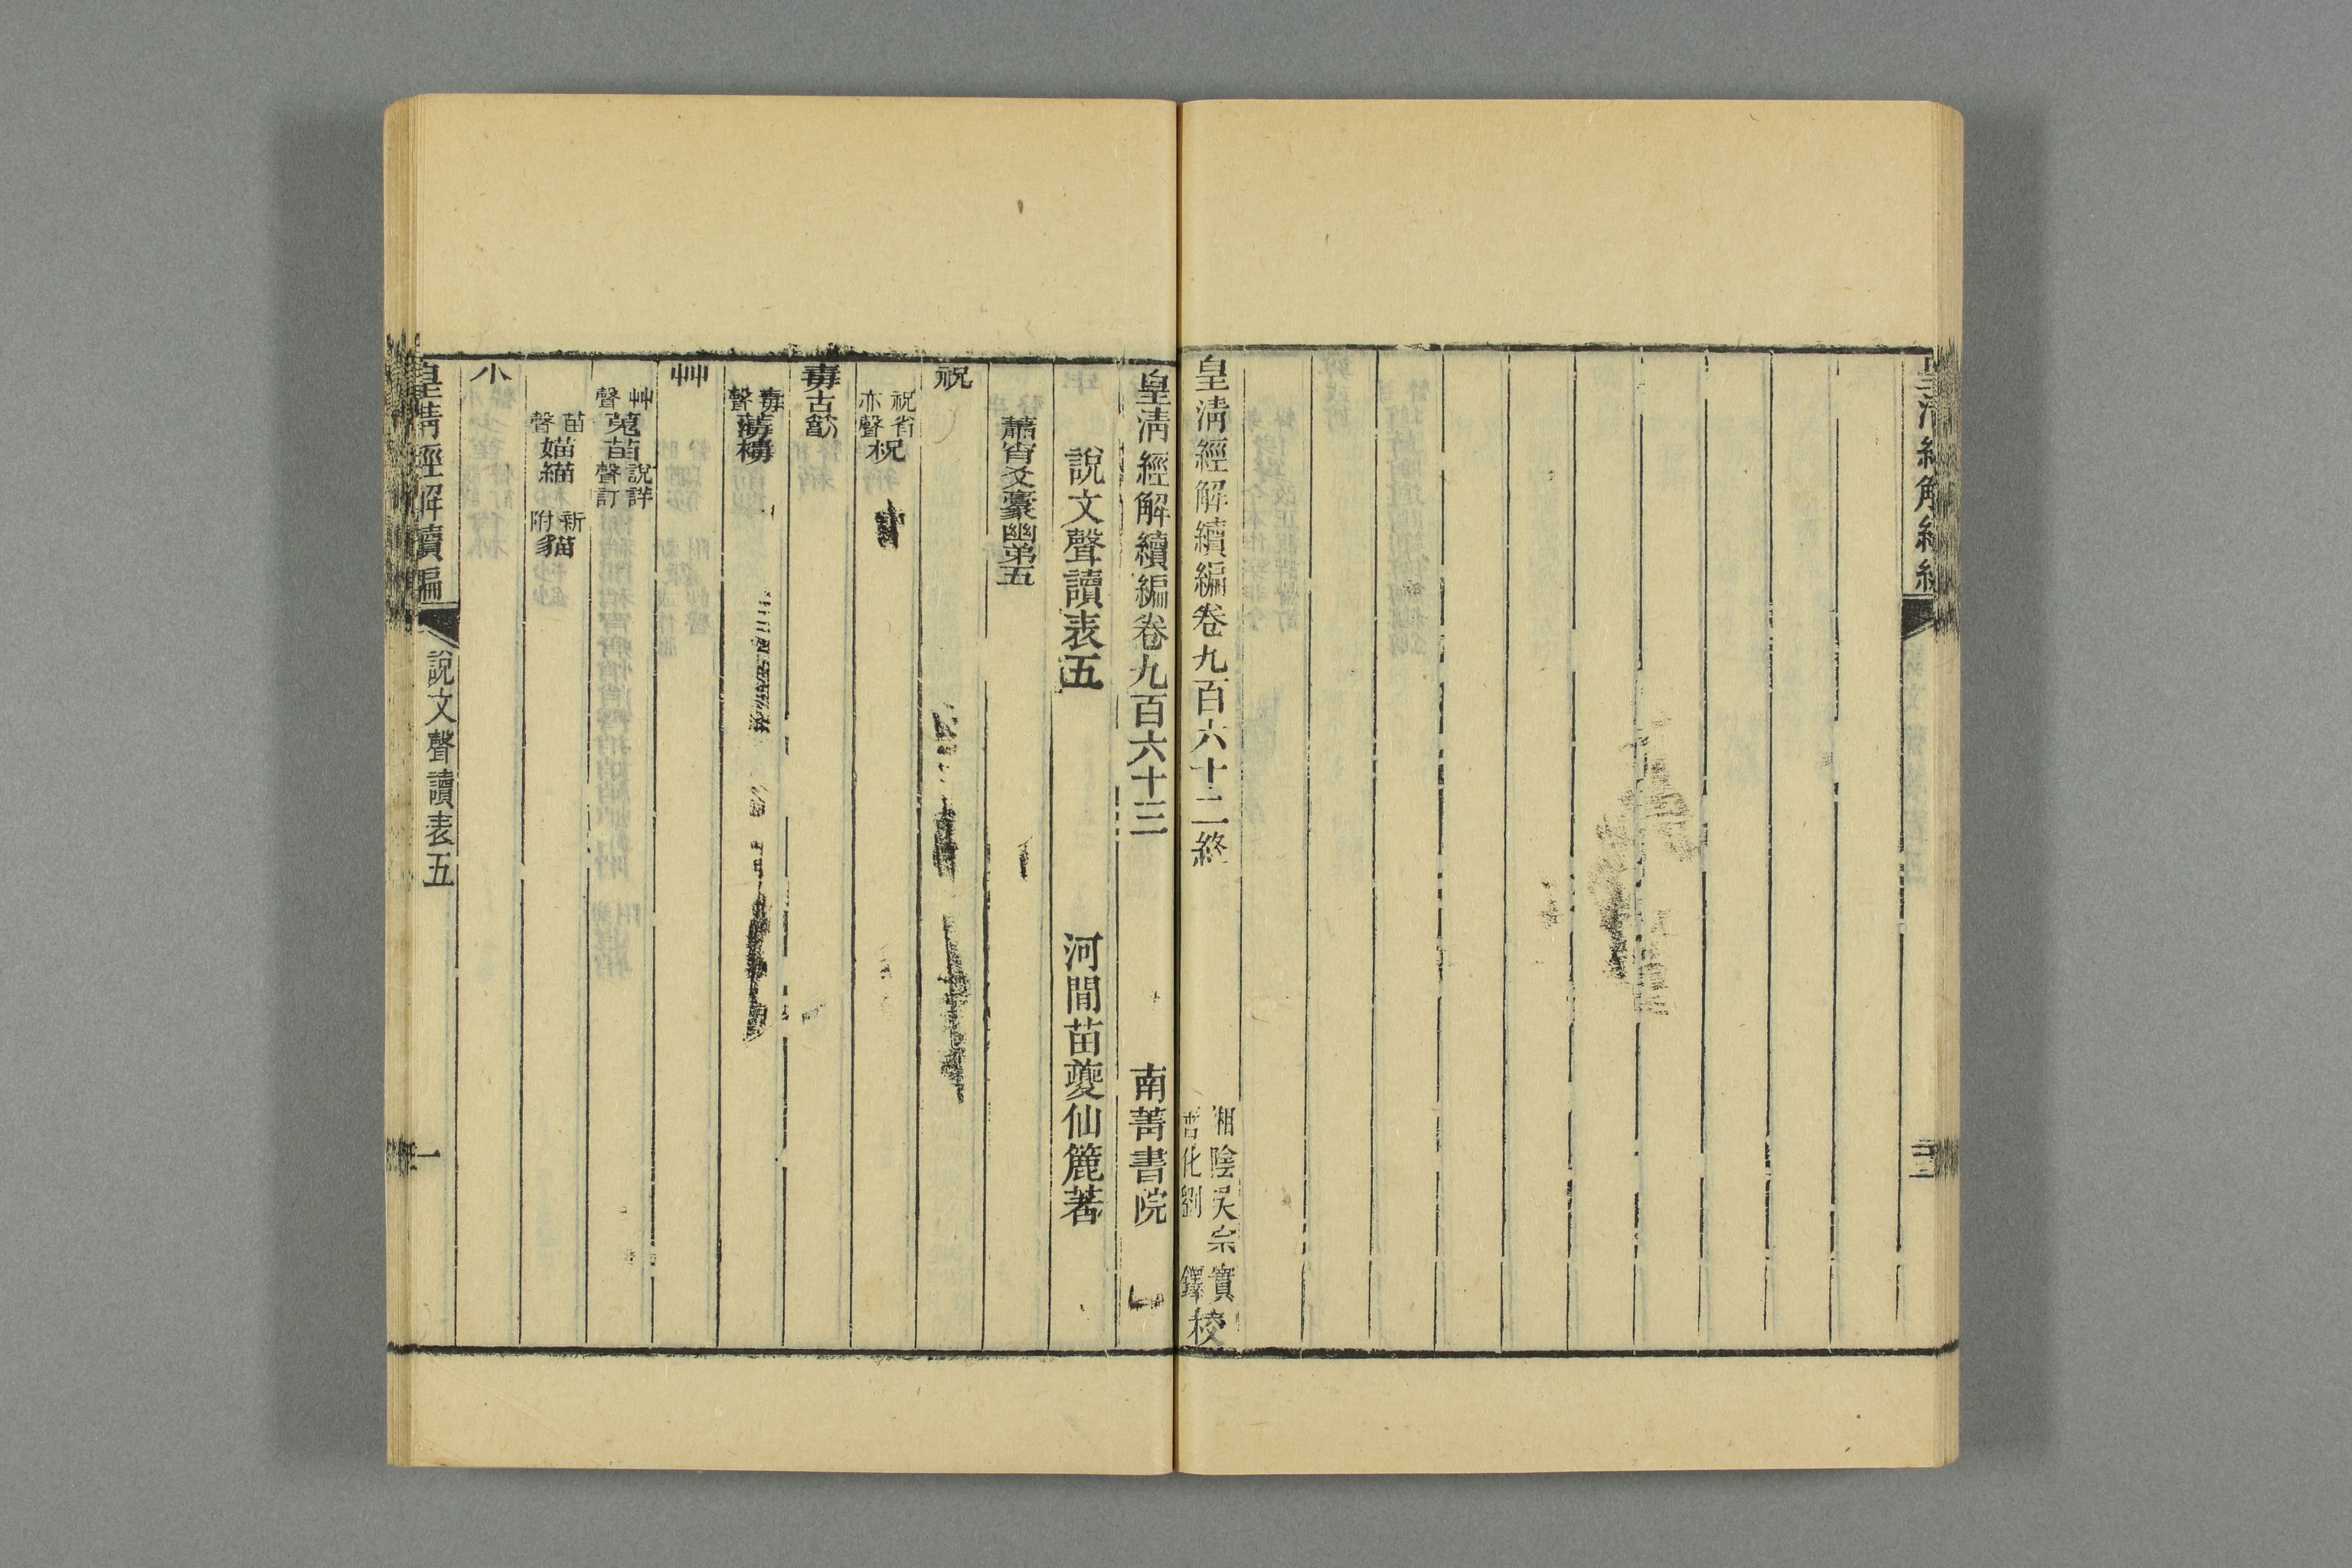 皇清經解續編卷九百六十二終
湘陰吳宗實
善化劉鐸校
皇清經解續編卷九百六十三
南菁書院
說文聲讀表五
河間苗夔仙簏著
蕭宵爻豪幽弟五
祝
祝省亦聲柷
毒古𥳑
毒聲
艸
艸聲蒐苗說詳聲訂
苗聲媌緢 新附貓
小
皇清經解續編
說文聲讀表五
一